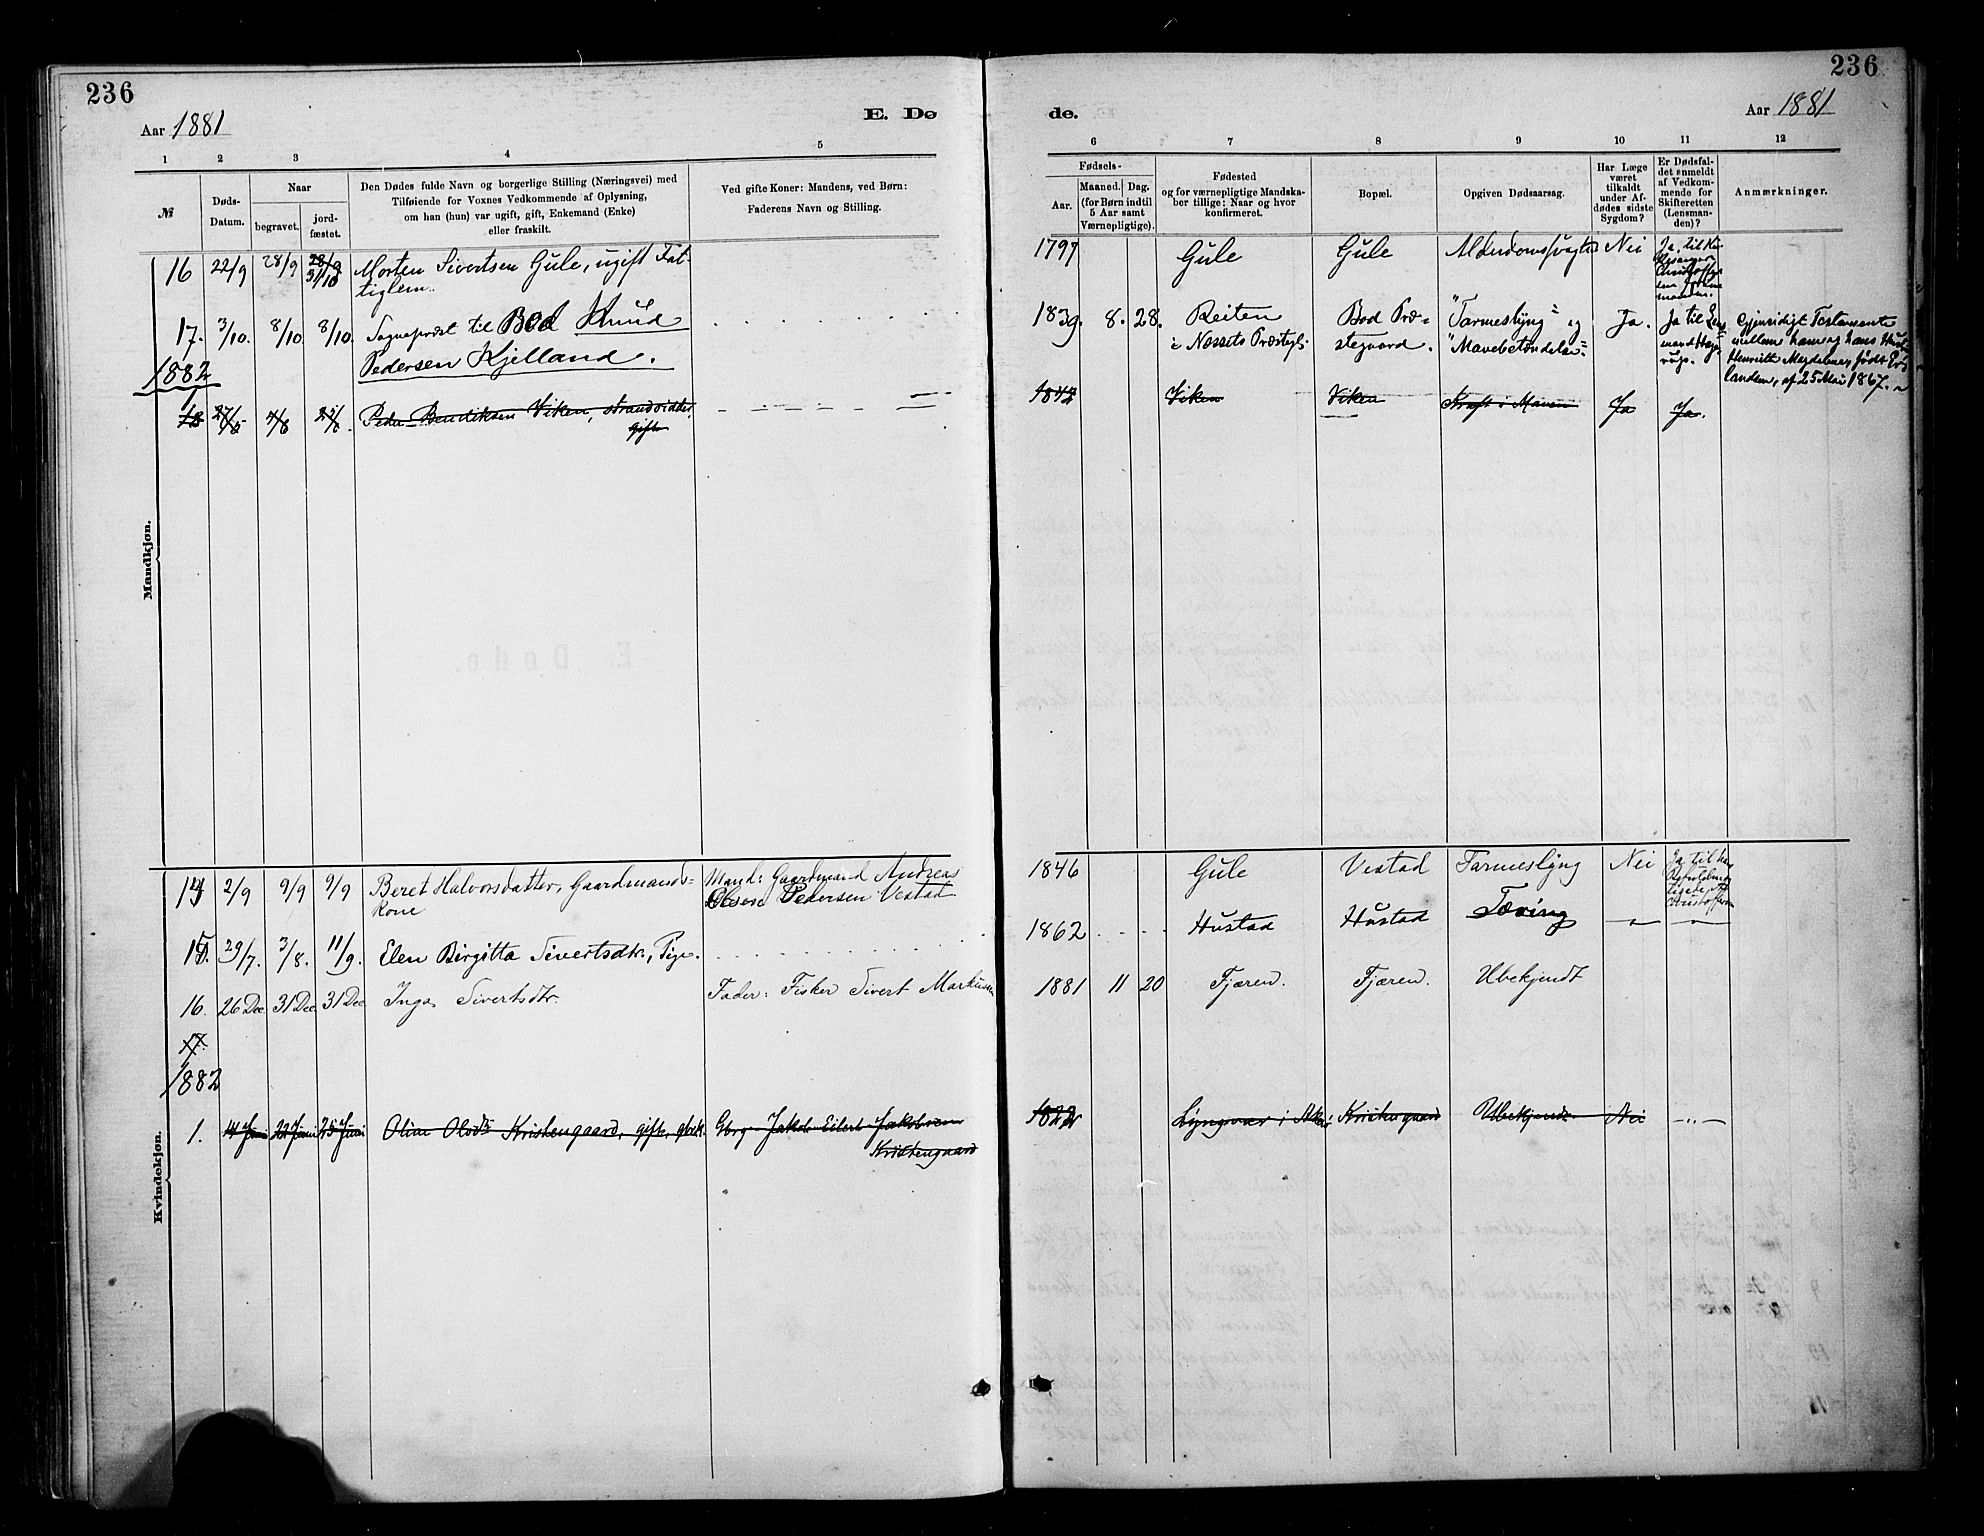 236
236
Aar 1881
E. Dø
de.
Aar 1881
1 2 3 4 5
6 7 8 9 10 11 12
№
Døds-
Datum.
Naar
begravet.
jord-
fæstet.
Den Dødes fulde Navn og borgerlige Stilling (Næringsvei) med
Tilføiende for Voxnes Vedkommende af Oplysning,
om han (hun) var ugift, gift, Enkemand (Enke)
eller fraskilt.
Ved gifte Koner: Mandens, ved Børn:
Faderens Navn og Stilling.
Fødsels-
Aar.
Maaned. Dag.
(for Børn indtil
5 Aar samt
Værnepligtige).
Fødested
og for værnepligtige Mandska-
ber tillige: Naar og hvor
konfirmeret.
Bopæl.
Opgiven Dødsaarsag.
Har Læge
været
tilkaldt
under Af-
dødes sidste
Sygdom?
Er Dødsfal-
det anmeldt
af Vedkom-
mende for
Skifteretten
(Lensman-
den)?
Anmærkninger.
Mandkjøn.
16 22/9 28/9 28/9 31/10 Morten Sivertsen Gule, ugift Fat-
tiglem.
1797 Gule Gule Nei Ja, til
17. 3/10. 8/10 8/10. Sogneprest til Bod Knud
Pedersen Kjelland.
1839. 8. 28. Reiten
i Nessets Præstegj.
Bod Præ-
stegaard.
"Tarmeslyng" og
"Mavebetændelse".
Ja.
Ja til Lens
mand
Gjensidigt Testamente
mellem ham og hans Hustru
Henriette Magdalena, født
af 25 Mai 1867.
1882
18 Peder Bendiksen Viken, strandsidder,
gift
1842 Viken Viken Kræft i Maven Ja Ja.
Kvindekjøn.
14 2/9 9/9 9/9 Beret Halvorsdatter, Gaardmands-
kone
Mand: Gaardmand Andreas
Pedersen Vestad
1846 Gule Vestad Tarmeslyng Nei Ja til
15. 29/7. 3/8. 11/9. Elen Birgitta Sivertsdtr., Pige.
1862 Hustad Hustad Tæring
16. 26 Dec 31 Dec 31 Dec Inga Sivertsdtr.
Fader: Fisker Sivert Markussen
1881 11 20 Fjæren. Fjæren. Ubekjendt
17.
1882
1. 14 Juni 22 Juni 25 Juni Oline Olsdtr Kristengaard, gift,
Jakob Eilert Jakobsen
Kristengaard
1822 Kristengaard Ubekjendt Nei